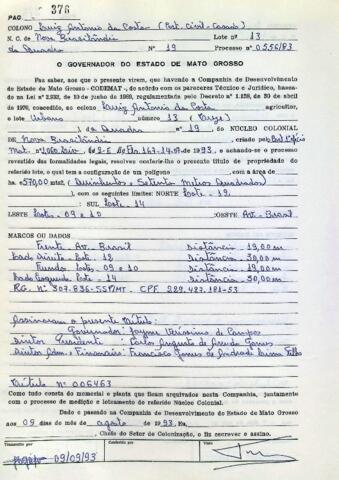 PAG. 376
COLONO Luiz Antonio da Costa (Port. civil-Casado)
N. C. de Nova Brasilândia Lote nº 13
da Quadra Nº 19 Processo nº 0556/83
O GOVERNADOR DO ESTADO DE MATO GROSSO
Faz saber, aos que o presente virem, que havendo a Companhia de Desenvolvimento
do Estado de Mato Grosso - CODEMAT -, de acôrdo com os pareceres Técnico e Jurídico, basea-
do na Lei nº 2.922, de 10 de junho de 1969, regulamentada pelo Decreto nº 1.138, de 20 de abril
de 1970, concedido, ao colono Luiz Antonio da Costa agricultor,
o lote Urbano número 13 (Treze)
) da Quadra nº 19 DO NÚCLEO COLONIAL
DE Nova Brasilândia, criado pelo
Mat. nº 1.060 Liv. Fls. 167 93, e achando-se o processo
revestido das formalidades legais, resolveu conferir-lhe o presente título de propriedade do
referido lote, o qual tem a configuração de um polígono com a área de
ha = 570,00 mts2 (Quinhentos e Setenta Metros Quadrados)
com os seguintes limites: NORTE Lote - 12
SUL Lote - 14
LESTE Lotes - 09 e 10 OESTE Av. Brasil
MARCOS OU DADOS
Frente Av. Brasil Distância - 19,00 m
Lado Direito - Lote - 12 Distância - 30,00 m
Fundo - Lotes - 09 e 10 Distância - 19,00 m
Lado Esquerdo - Lote - 14 Distância - 30,00 m
RG. Nº 307.836-SSP/MT. CPF 289.427.181-53
Assinaram o presente Título:
Governador: Jayme Veríssimo de Campos
Diretor Presidente: Carlos Augusto de Arruda Gomes
Diretor Adm. e Financeiro: Francisco Gomes de Andrade Lima Filho
Título nº 006463
Como tudo consta do memorial e planta que ficam arquivados nesta Companhia, juntamente
com o processo de medição e loteamento do referido Núcleo Colonial.
Dado e passado na Companhia de Desenvolvimento do Estado de Mato Grosso
aos 09 dias do mês de agosto de 1993. Eu,
, Chefe do Setor de Colonização, o fiz escrever e assino.
Transcrito por Conferido por Visto
09/09/93